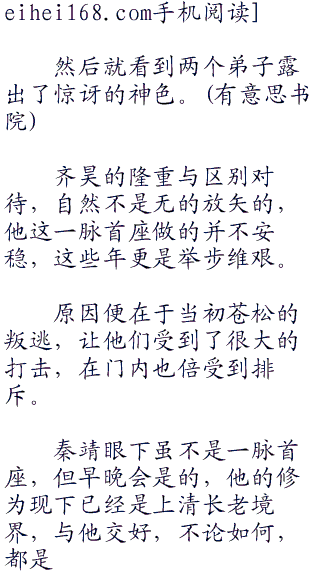 eihei168.com手机阅读]
然后就看到两个弟子露
出了惊讶的神色。(有意思书
院)
齐昊的隆重与区别对
待，自然不是无的放矢的，
他这一脉首座做的并不安
稳，这些年更是举步维艰。
原因便在于当初苍松的
叛逃，让他们受到了很大的
打击，在门内也倍受到排
斥。
秦靖眼下虽不是一脉首
座，但早晚会是的，他的修
为现下已经是上清长老境
界，与他交好，不论如何，
都是